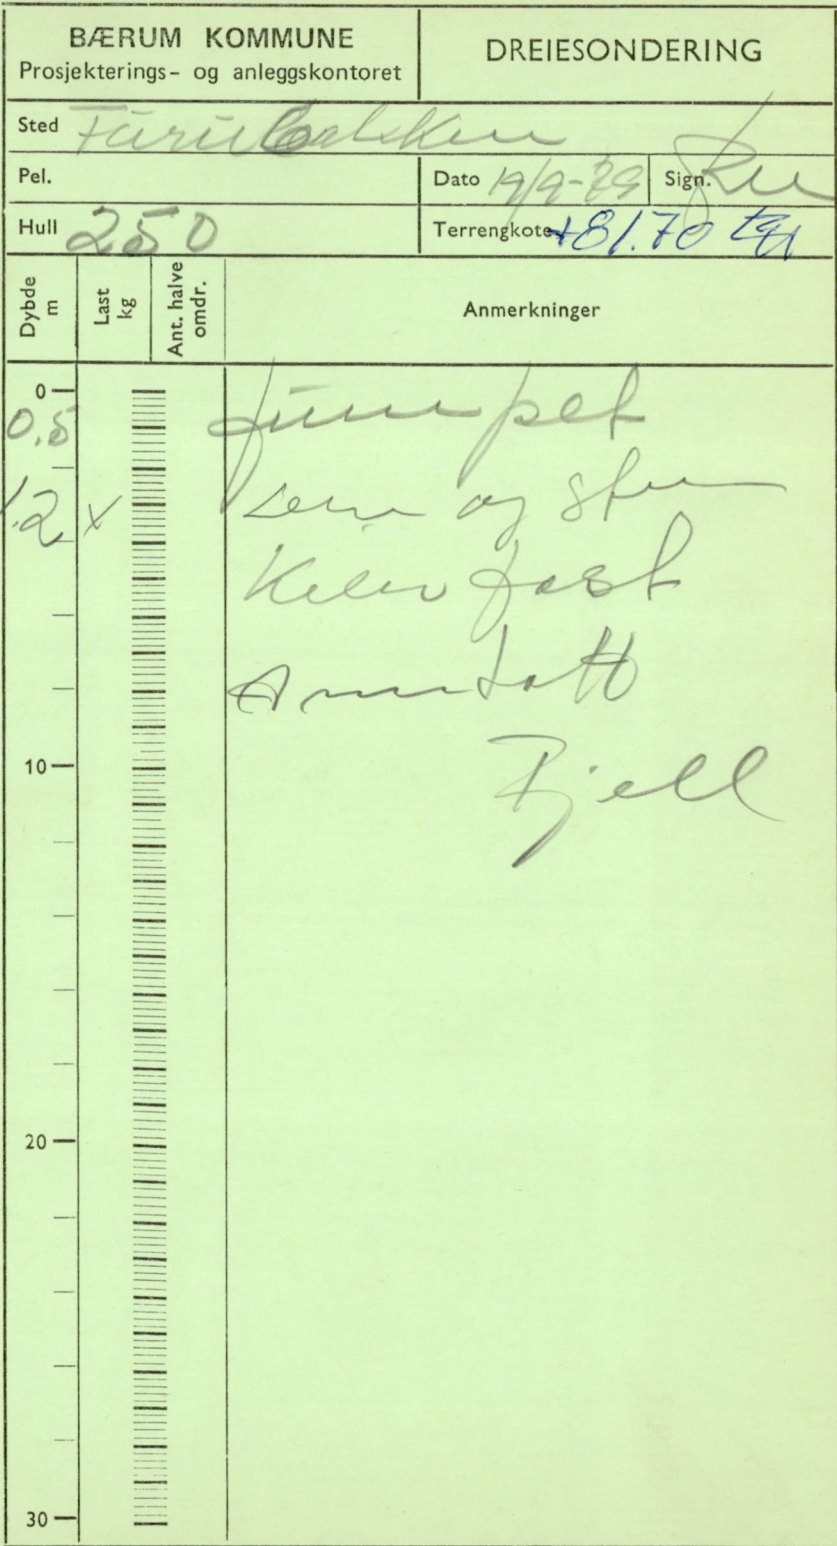 BÆRUM KOMMUNE
Prosjekterings- og anleggskontoret
DREIESONDERING
Sted Furubakken
Pel.
Dato 19/9-79
Sign.
Hull 250
Terrengkote +81.70
Dybde m
Last kg
Ant. halve omdr.
Anmerkninger
0
0.5 pet
1.2 x og
fast
Antatt
Fjell
10
20
30